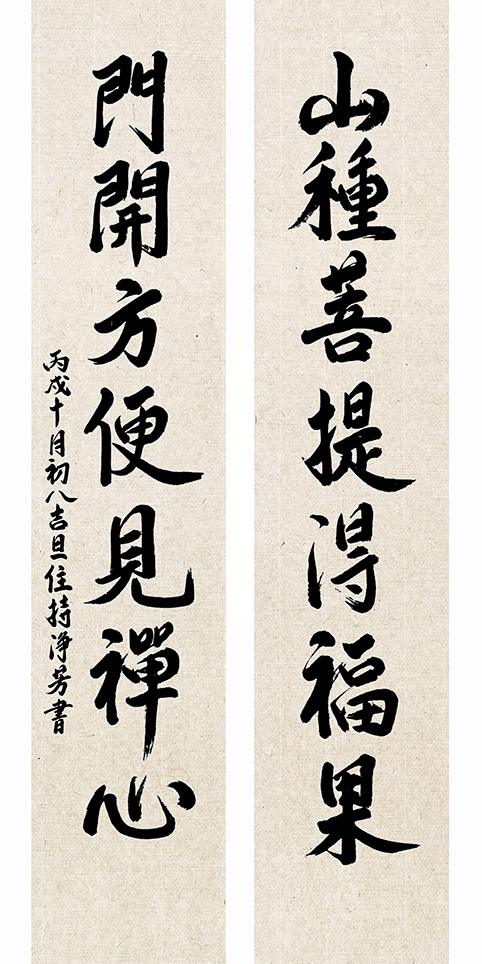 山種菩提得福果
門開方便見禪心
丙戌十月初八吉旦住持淨芳書